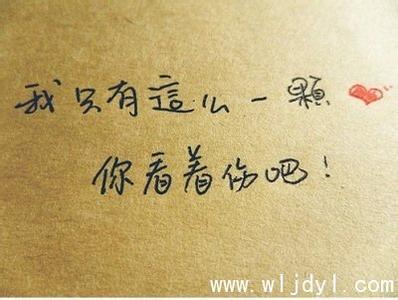 我只有這么一顆❤
你看着伤吧！
www.wljdyl.com